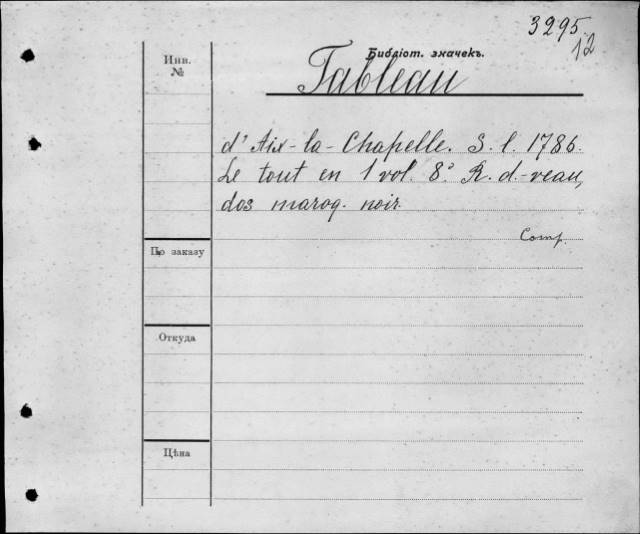 3295.
12
Инв.
№
Библіот. значекъ.
Tableau
d' Aix-la-Chapelle. S. l. 1786.
Le tout en 1 vol. 8° R. d.-veau,
dos maroq. noir.
Comp.
По заказу
Откуда
Цѣна